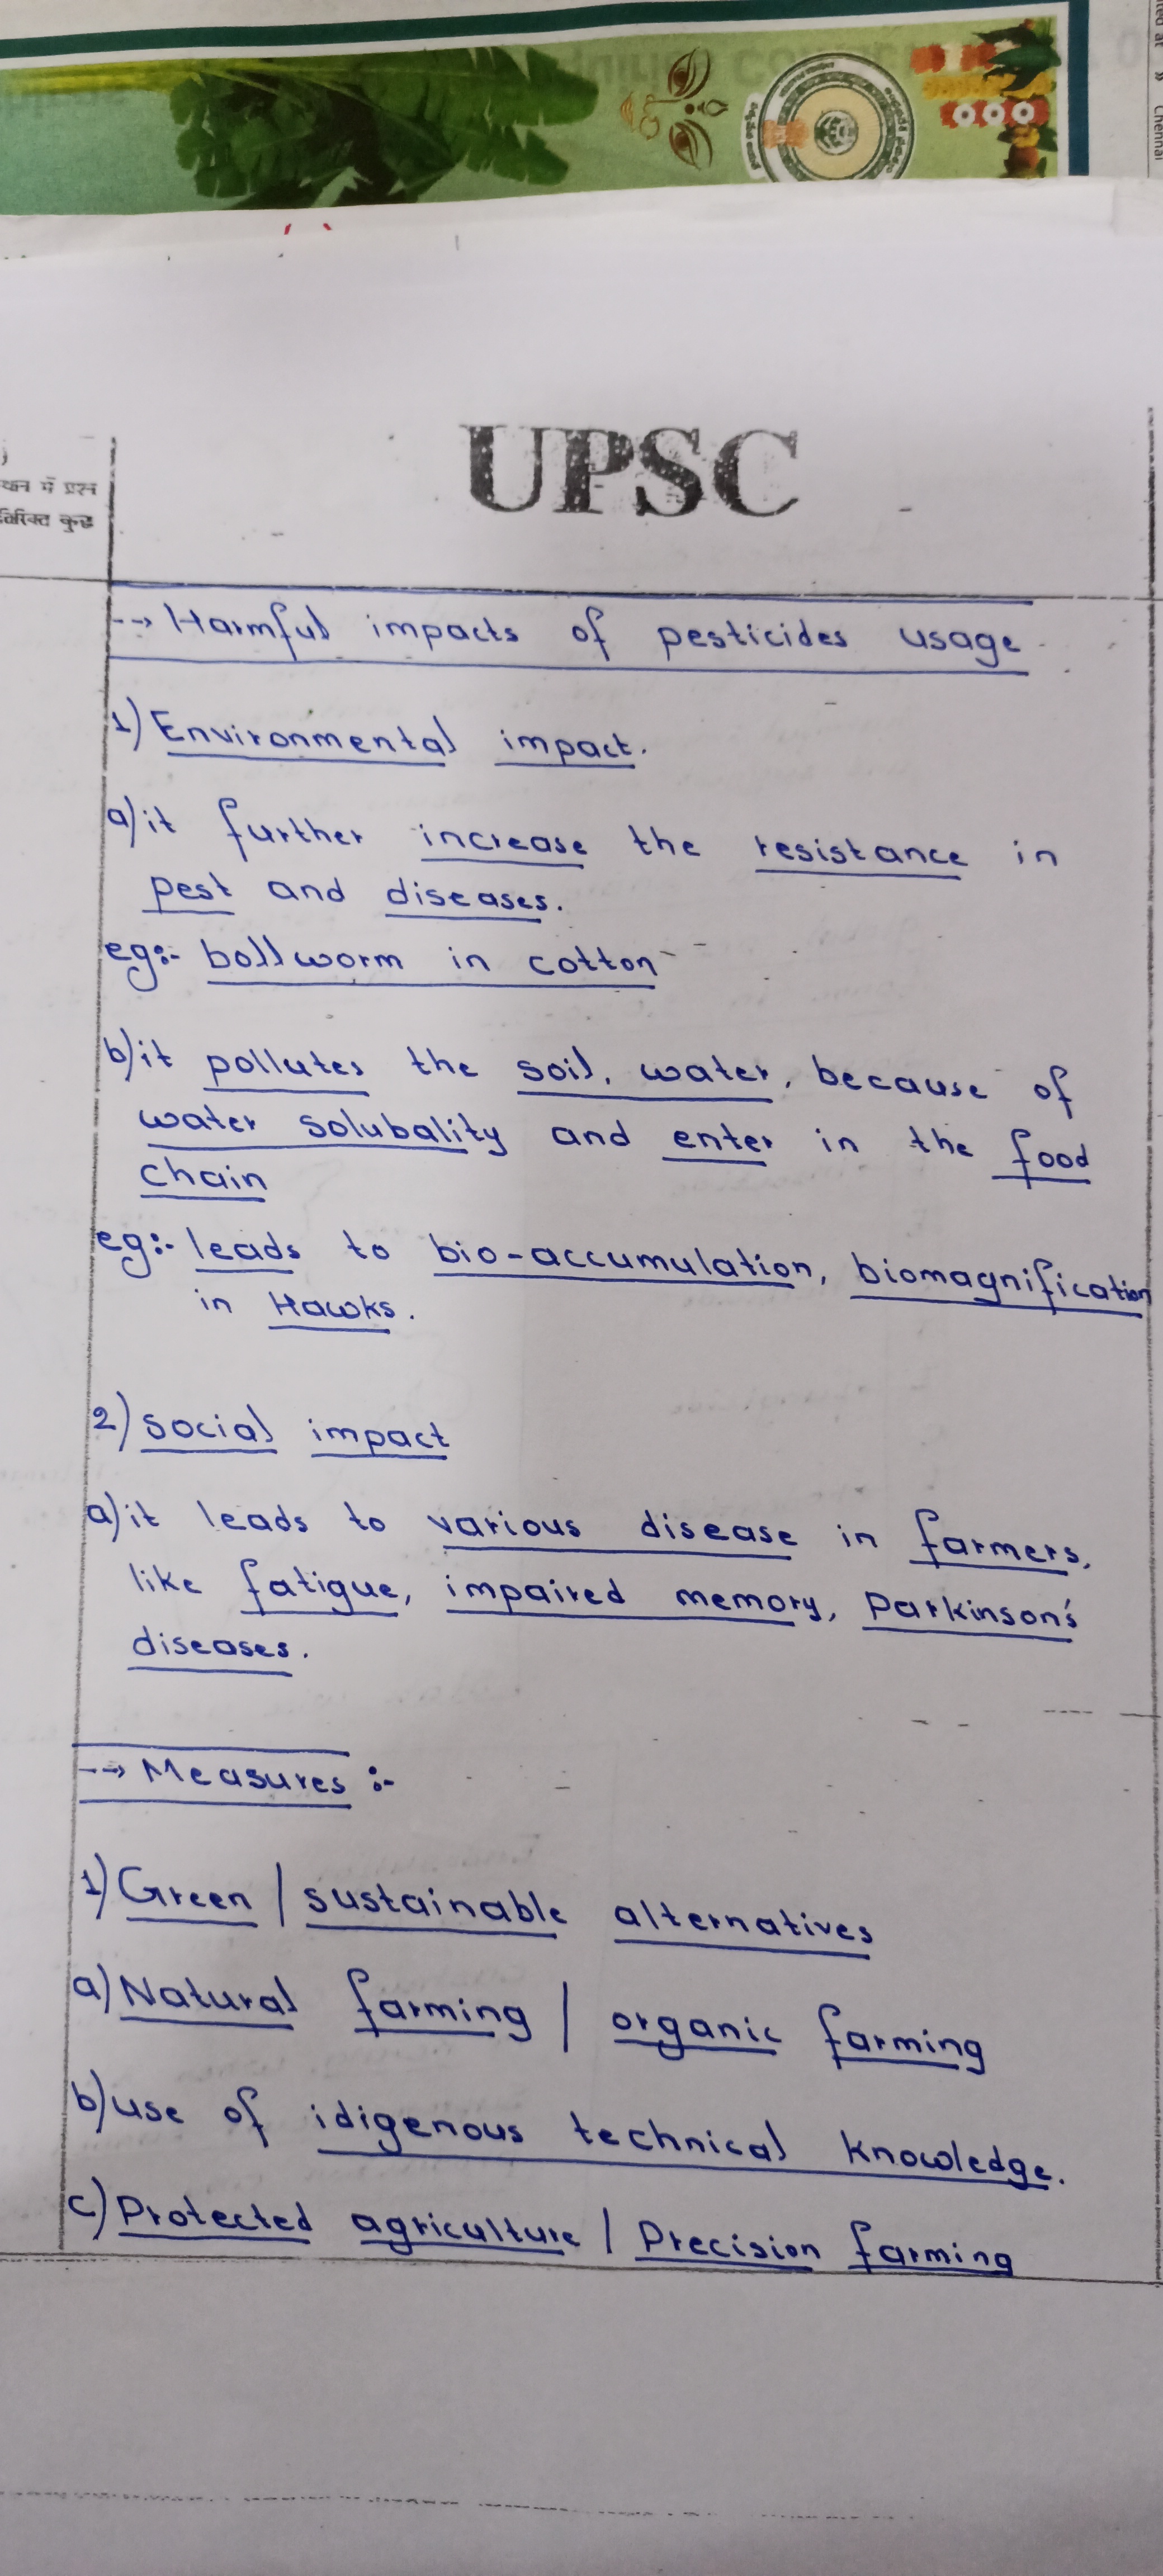 Chennai
थान में प्रश्न
UPSC
--> Harmful impacts of pesticides usage
1) Environmental impact.
a) it further increase the resistance in
pest and diseases.
eg:- bollworm in cotton
b) it pollutes the soil, water, because of
water solubality and enter in the food
chain
eg:- leads to bio-accumulation, biomagnification
in Hawks.
2) Social impact
a) it leads to various disease in farmers,
like fatigue, impaired memory, Parkinson's
diseases.
--> Measures :-
1) Green / sustainable alternatives
a) Natural farming / organic farming
b) use of idigenous technical knowledge.
c) Protected agriculture / Precision farming